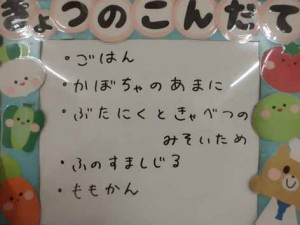 きょうのこんだて
・ごはん
・かぼちゃのあまに
・ぶたにくときゃべつの
みそいため
・ふのすましじる
・ももかん